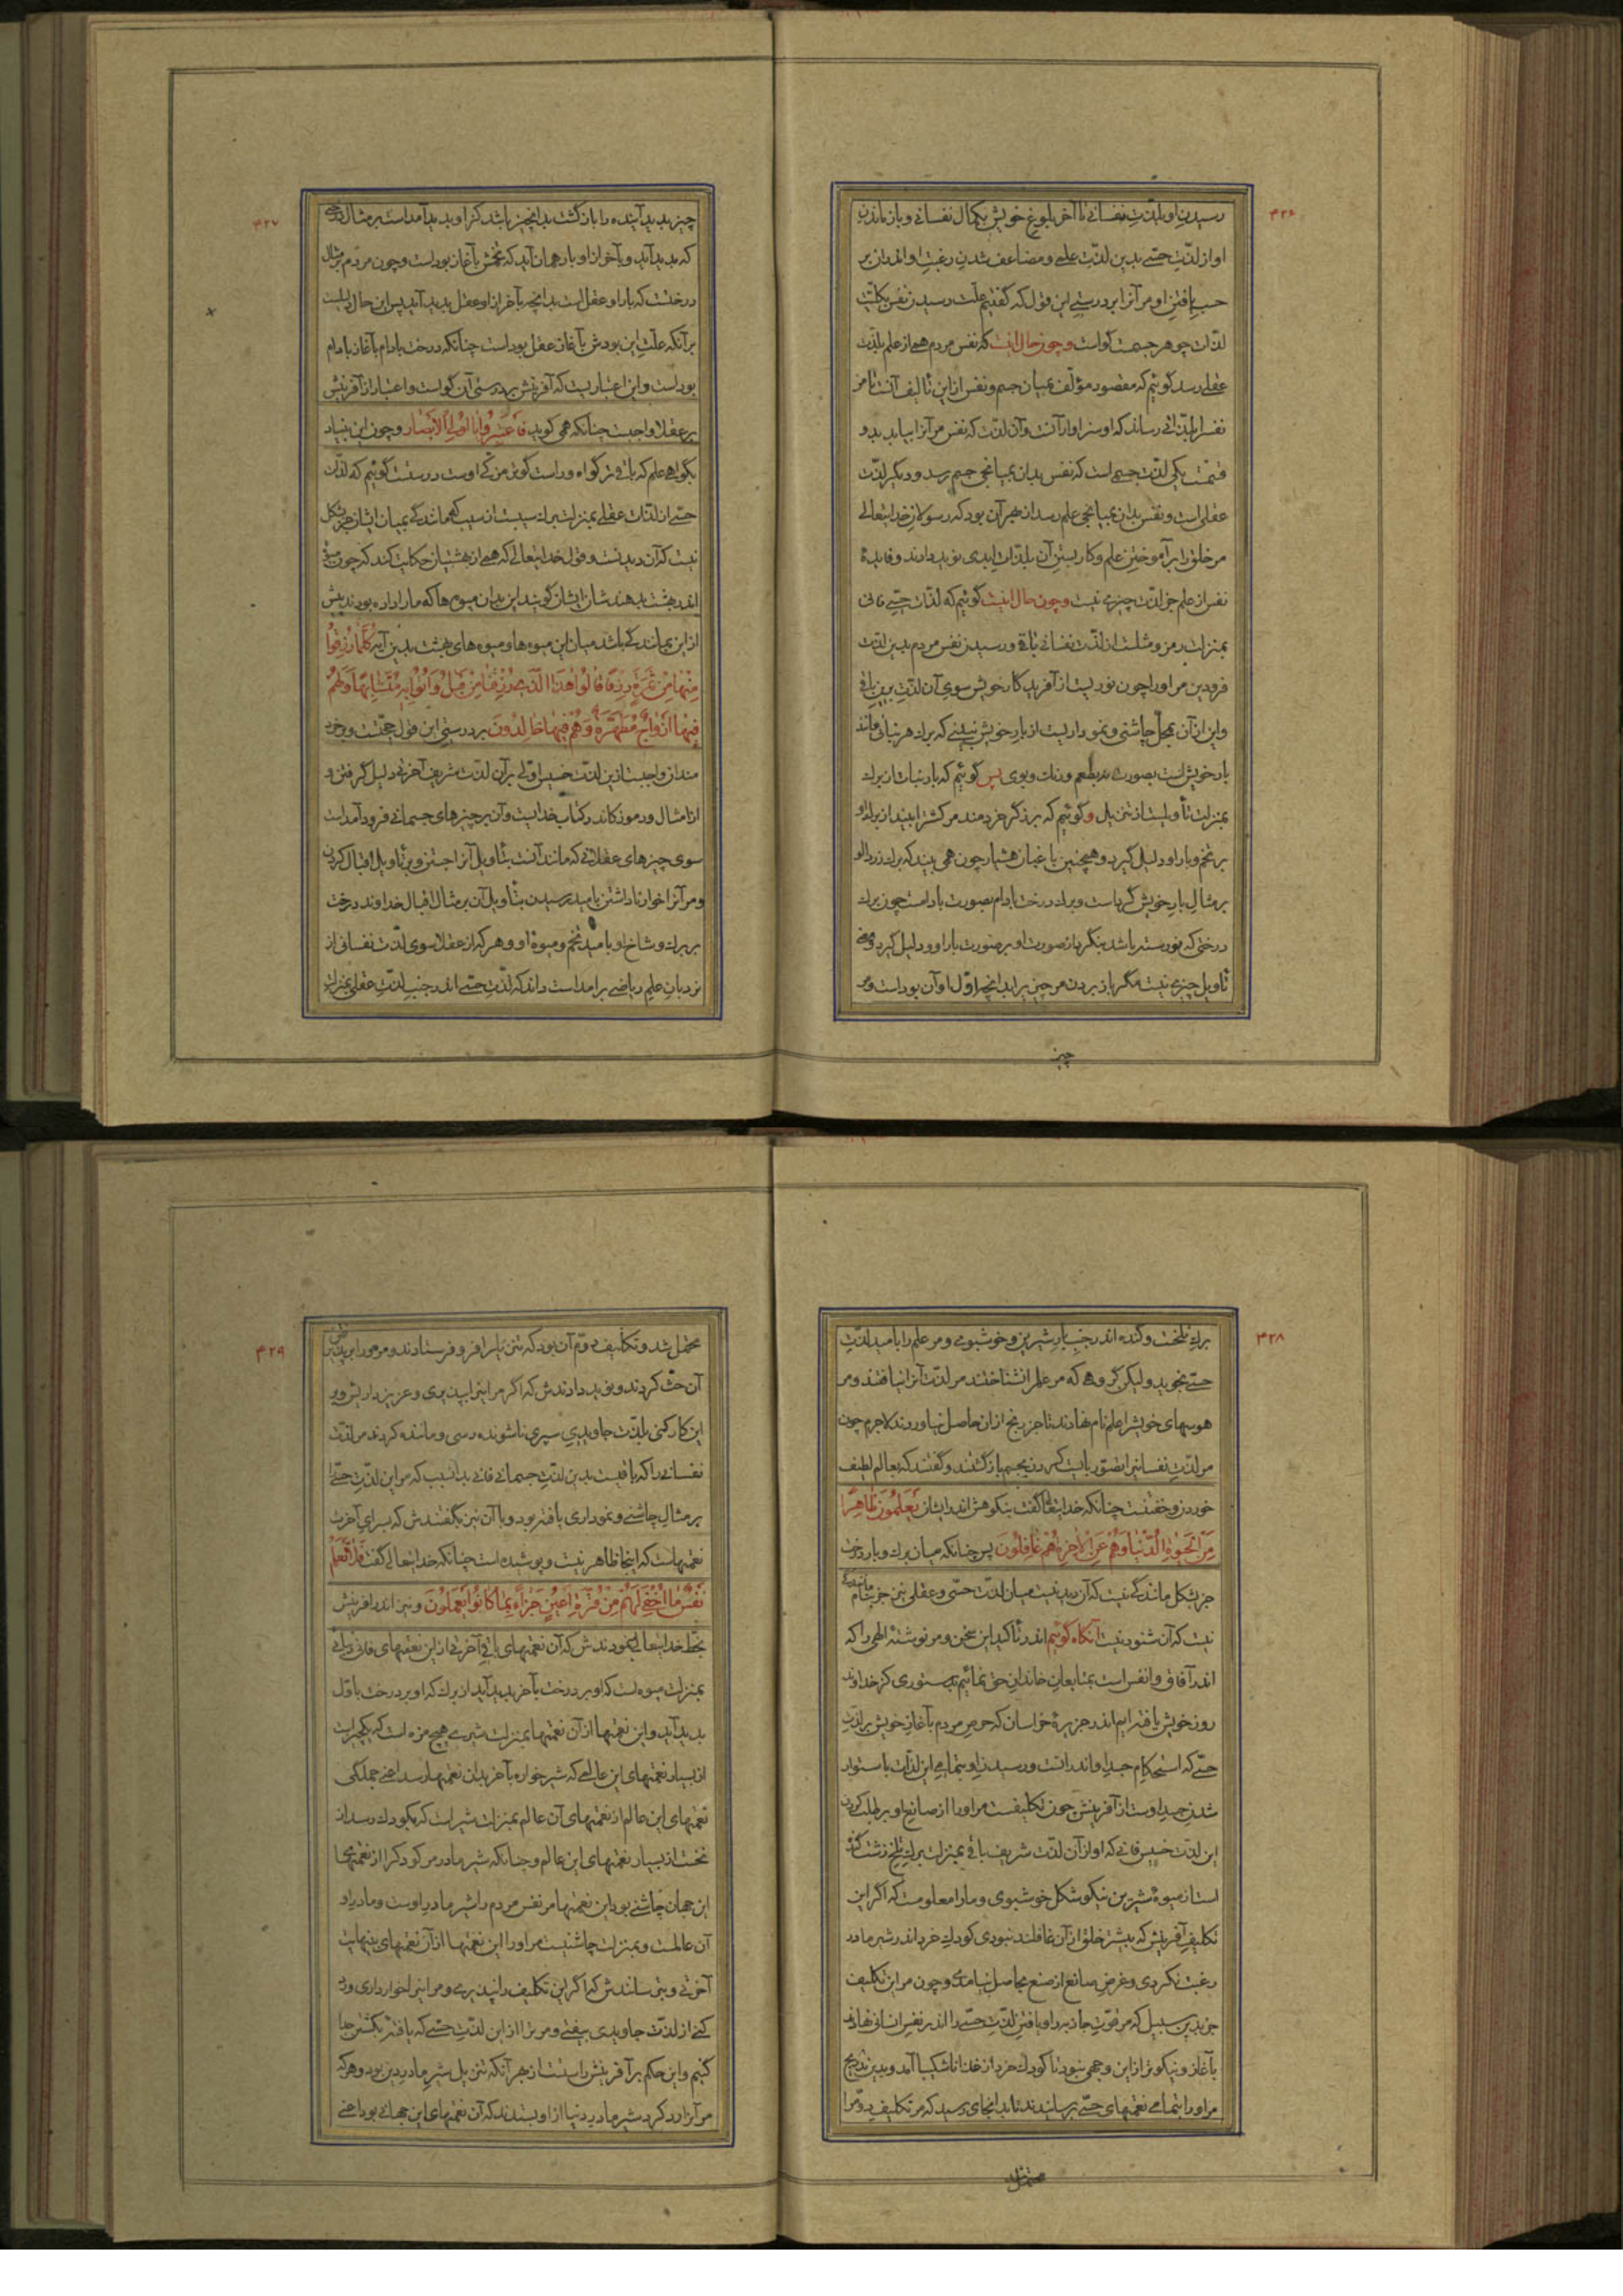 ۴۲۶
رسیدن او بلذت نفسانی تا آخر بلوغ خویش بکمال نفسانی و باز ماندن
او از لذت حسی بدین لذت علمی و مضاعف شدن رغبت او اندران بر
حسب یافتن او مر آنرا بر درستی این قول که گفتیم علت رسیدن نفس بکلیت
لذات جوهر جسمت گواست و چون حال اینست که نفس مردم همی از علم بلذت
عقلی رسد گوئیم که مقصود مؤلف بمیان جسم و نفس از این تألیف آنست تا مر
نفس را بلذاتی رساند که او سزاوار آنست و آن لذت که نفس مر آنرا بیابد بدو
قسمت یکی لذت حسی است که نفس بدان بمیانجی جسم رسد و دیگر لذت
عقلی است و نفس بدان بمیانجی علم رسد از بهر آن بود که رسولان خدایتعالی
مر خلق را بر آموختن علم و کار بستن آن بلذات ابدی نوید دادند و فایدۀ
نفس از علم جز لذت چیزی نیست و چون حال اینست گوئیم که لذات حسی فانی
بمنزلت رمز و مثلست از لذت نفسانی باقی و رسیدن نفس مردم بدین لذت
فرودین مر او را چون نوریست از آفریدگار خویش سوی آن لذت برین باقی
و این از آن بمحل چاشنی و نموداریست از بار خویش نبینی که برگ هر نباتی مانند
بار خویش است بصورت نه بطعم و رنگ و بوی پس گوئیم که بار نبات از برگ
بمنزلت تأویلست از تنزیل و گوئیم که برزگر خردمند مر کشت را ببیند از برگ او
بر تخم و بار او دلیل گیرد و همچنین باغبان هشیار چون همی بیند که برگ زردالو
بر مثال بار خویش گرد است و برگ درخت بادام بصورت بادامست چون برگ
درختی که نورسته باشد بنگرد از صورت او بر صورت بار او و دلیل گیرد و معنی
تأویل چیزی نیست مگر باز بردن مر چیز را بدانچه اول او آن بود است و مر
چیز
۴۲۷
چیز پدید آینده را بازگشت بدانچیز باشد کز او پدید آمد است بر مثال درختی
که پدید آید و بآخر از او بار همان آید که تخمش بآغاز بود است و چون مردم بر مثال
درختست که بار او عقل است بدانچه بآخر از او عقل پدید آید پس این حال دلیلست
بر آنکه علت این بودش بآغاز عقل بود است چنانکه درخت بادام بآغاز بادام
بود است و این اعتباریست که آفرینش بر درستی آن گواست و اعتبار از آفرینش
بر عقلا واجبست چنانکه همی گوید فَاعْتَبِرُوا یَا اُولِی الْاَبْصَارِ و چون این بنیاد
بگواهی علم که باقی تر گواه و راست گوی تر مزکی اوست درستست گوئیم که لذات
حسی از لذات عقلی بمنزلت برگ سیبست از سیب که همانندگی بمیان ایشان جز بشکل
نیست که آن دیدنیست و قول خدایتعالی که همی از بهشتیان حکایت کند که چون میوۀ
اندر بهشت بدهند شان ایشان گویند این بدان میوه ها که ما را داده بودند پیش
از این بمانندگی باشد میان این میوه ها و میوه های بهشت بدین آیه کُلَّمَا رُزِقُوا
مِنْهَا مِنْ ثَمَرَةٍ رِزْقًا قَالُوا هَذَا الَّذِی رُزِقْنَا مِنْ قَبْلُ وَاُتُوا بِهِ مُتَشَابِهًا وَلَهُمْ
فِیهَا اَزْوَاجٌ مُطَهَّرَةٌ وَهُمْ فِیهَا خَالِدُونَ بر درستی این قول حجتست و بر خرد
مندان واجبست از این لذت خسیس اولی بر آن لذت شریف آخرتی دلیل گرفتن و
از امثال و رموز کاندر کتاب خدایست و آن بر چیزهای جسمانی فرود آمد است
سوی چیزهای عقلانی که مانند آنست بتأویل آنرا جستن و بر تأویل اقبال کردن
و مر آنرا خوار ناداشتن بامید رسیدن بتأویل آن بر مثال اقبال خداوند درخت
بر برگ و شاخ او بامید تخم و میوۀ او و هر که از عقلا سوی لذت نفسانی از
نردبان علم ریاضی بر امد است داند که لذت حسی اندر جنب لذت عقلی بمنزلت
۴۲۸
برگ تلخست و گنده اندر جنب بار شیرین و خوشبوی و مر علم را بامید لذت
حسی نجوید ولیکن گروهی که مر علم را نشناختند مر لذت آنرا نیافتند و مر
هوسهای خویشرا علم نام نهادند تا جز رنج از ان حاصل نیاوردند لاجرم چون
مر لذت نفسانیرا تصور بایست کردن بجسم بازگشتند و گفتند که بعالم لطیف
خوردن و خفتنست چنانکه خدایتعالی گفت بنکوهش اندر ایشان یَعْلَمُونَ ظَاهِرًا
مِنَ الْحَیٰوةِ الدُّنْیَا وَهُمْ عَنِ الْاٰخِرَةِ هُمْ غَافِلُونَ پس چنانکه میان برگ و بار درخت
جز بشکل مانندگی نیست که آن دیدنیست میان لذت حسی و عقلی نیز جز بنام مانندگی
نیست که آن شنودنیست آنگاه گوئیم اندر تأکید این سخن و مر نوشته الهی را که
اندر آفاق و انفس است بمتابعان خاندان حق نمائیم بدستوری کز خداوند
روز خویش یافته ایم اندر جزیرۀ خراسان که حرص مردم بآغاز خویش بر لذت
حسی که استحکام جسد او اندر انست و رسیدن او بتمامی این لذات با ستوار
شدن جسد اوست از آفرینش چون تکلیفست مر او را از صانع او بر طلب کردن
این لذت خسیس فانی که او از آن لذت شریف باقی بمنزلت برگ تلخ زشت گنده
است از میوۀ شیرین نیکو شکل خوشبوی و ما را معلومست که اگر این
تکلیف آفرینش که بیشتر خلق از آن غافلند نبودی کودک خرد اندر شیر مادر
رغبت نکردی و غرض صانع از صنع بحاصل نیامدی و چون مر این تکلیف
جز بدین سبیل که مر قوت جاذبه را و یافتن لذت حسی را اندر نفس انسانی نهادند
بآغاز و نیکوتر از این وجهی نبود تا کودک خرد از غذا ناشکیبا آمد و بدین تدریج
مر او را بتمامی نعمتهای حسی برسانیدند تا بدانجای رسید که مر تکلیف دوم را
محتمل شد
۴۲۹
محتمل شد و تکلیف دوم آن بود که تنزیل را بر او فرو فرستادند و مر او را بر پذیرفتن
آن حث کردند و نوید دادندش که اگر مر اینرا بپذیری و عزیز داریش و بر
این کار کنی بلذت جاویدی سپری ناشونده رسی و مانند کردند مر لذت
نفسانی را که باقیست بدین لذت جسمانی فانی بدانسبب که مر این لذت حسی را
بر مثال چاشنی و نموداری یافته بود و با آن نیز بگفتندش که بسرای آخرت
نعمتهاست که اینجا ظاهر نیست و پوشیده است چنانکه خدایتعالی گفت فَلَا تَعْلَمُ
نَفْسٌ مَا اُخْفِیَ لَهُمْ مِنْ قُرَّةِ اَعْیُنٍ جَزَاءً بِمَا کَانُوا یَعْمَلُونَ و نیز اندر آفرینش
بخط خدایتعالی بنمودندش که آن نعمتهای باقی آخرتی از این نعمتهای فانی دنیائی
بمنزلت میوه است که او بر درخت بآخر پدید آید از برگ که او بر درخت باول
پدید آید و این نعمتها از آن نعمتها بمنزلت شیر بی هیچ مزه است که یکچیز است
از بسیار نعمتهای این عالمی که شیر خواره بآخر بدان نعمتها رسد اعنی جملگی
نعمتهای این عالم از نعمتهای آن عالم بمنزلت شیر است که بکودک رسد از
نخست از بسیار نعمتهای این عالم و چنانکه شیر مادر مر کودک را از نعمتهای
این جهان چاشنی بود این نعمتها مر نفس مردم را شیر مادر اوست و مادر او
آن عالمست و بمنزلت چاشنیست مر او را این نعمتها از آن نعمتهای بینهایت
آخرتی و بترسانندش که اگر این تکلیف را نپذیری و مر اینرا خوار داری و رد
کنی از لذت جاویدی بیفتی و مر ترا از این لذت حسی که یافتۀ بکشتن جدا
کنیم و این حکم بر آفرینش راستست از بهر آنکه تنزیل شیر مادر دین بود و هر که
مر آنرا رد کرد شیر مادر دنیا از او بستدند که آن نعمتهای این جهانی بود اعنی